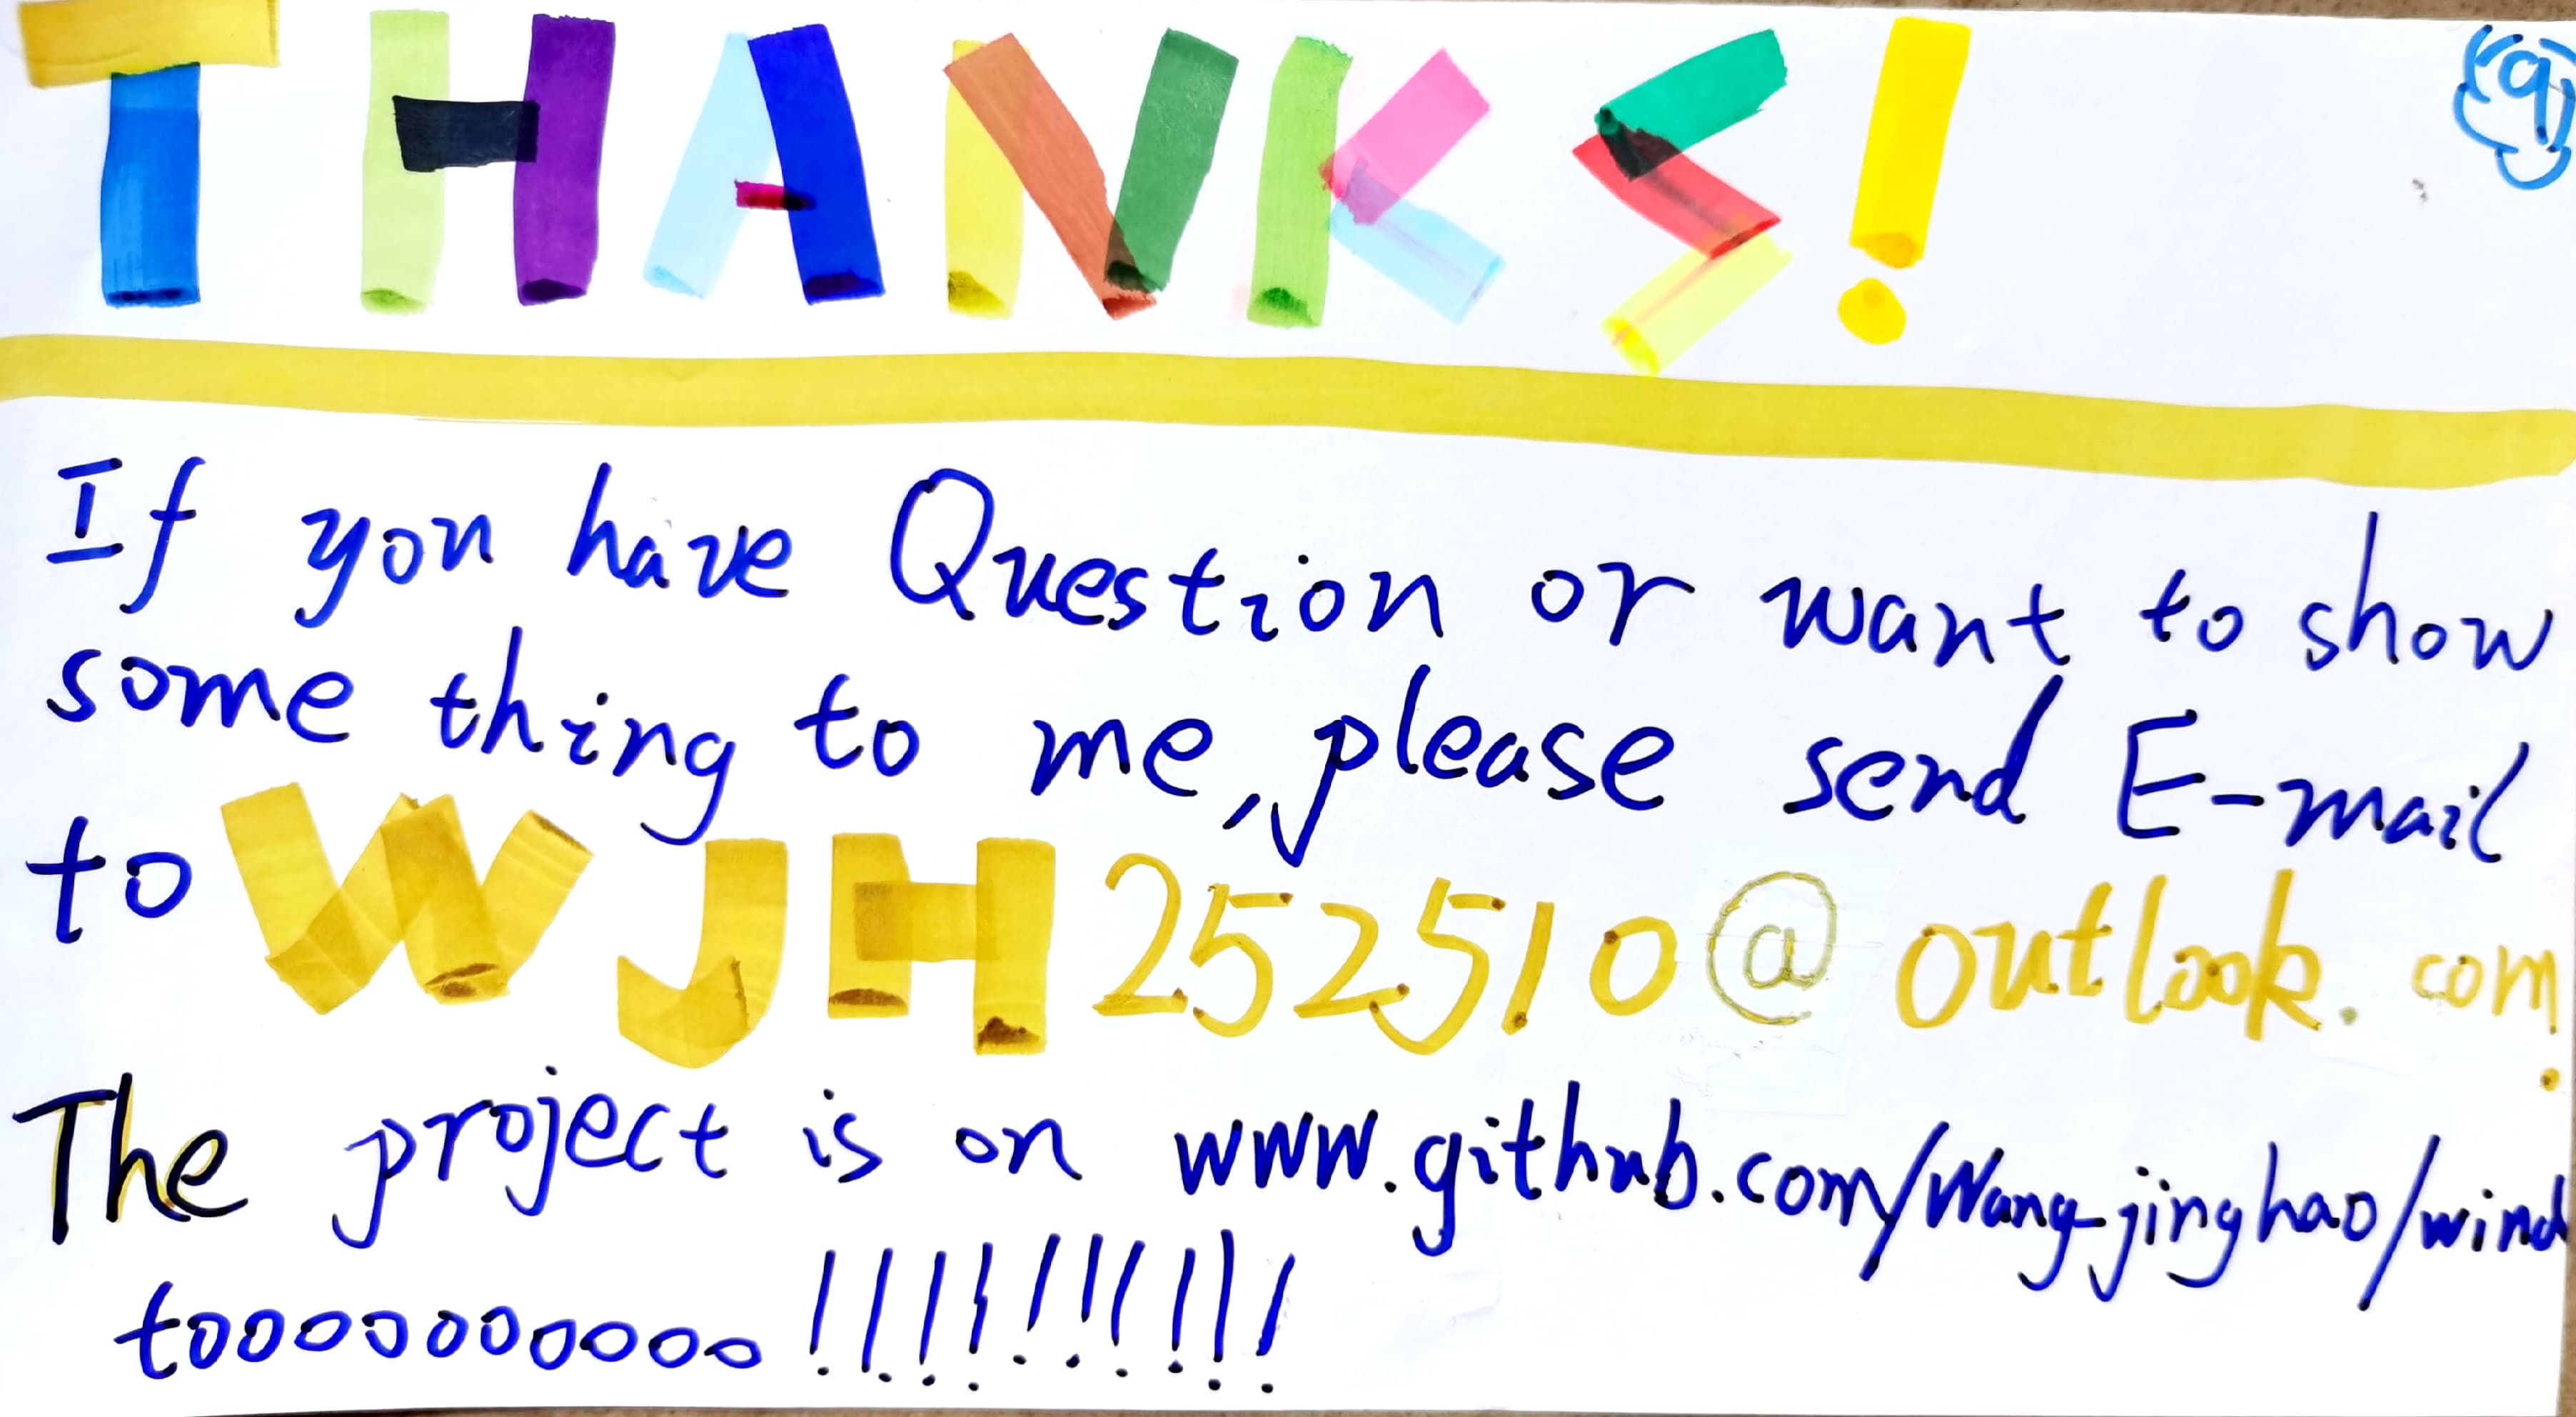 THANKS!
9
If you have Question or want to show
some thing to me, please send E-mail
to WJH252510@outlook.com.
The project is on www.github.com/Wang-jinghao/wind
tooooooooooo!!!!!!!!!!